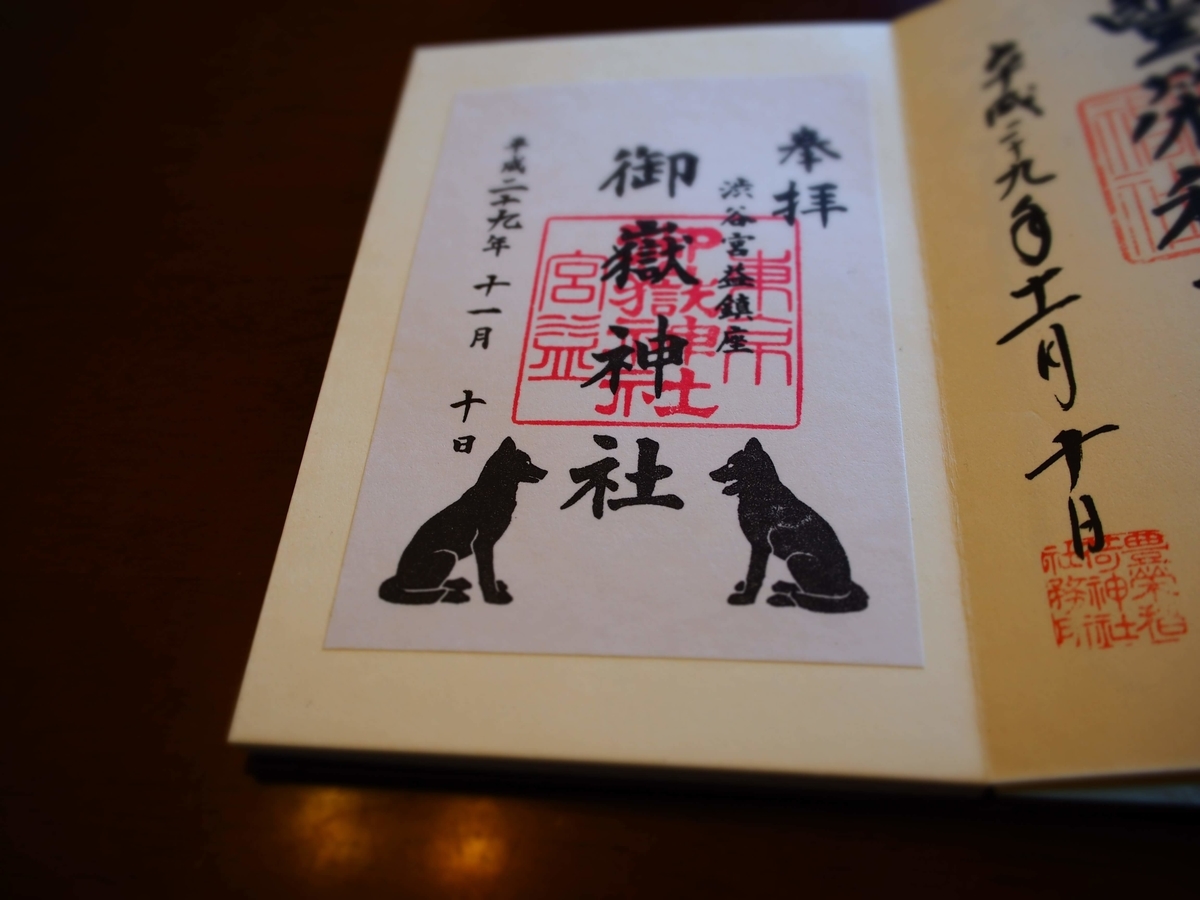 平成二十九年十一月十日
豊榮稲
荷神社
社務印
奉拝
渋谷宮益鎮座
御嶽神社
東京
御嶽神社
宮益
平成二十九年 十一月 十日